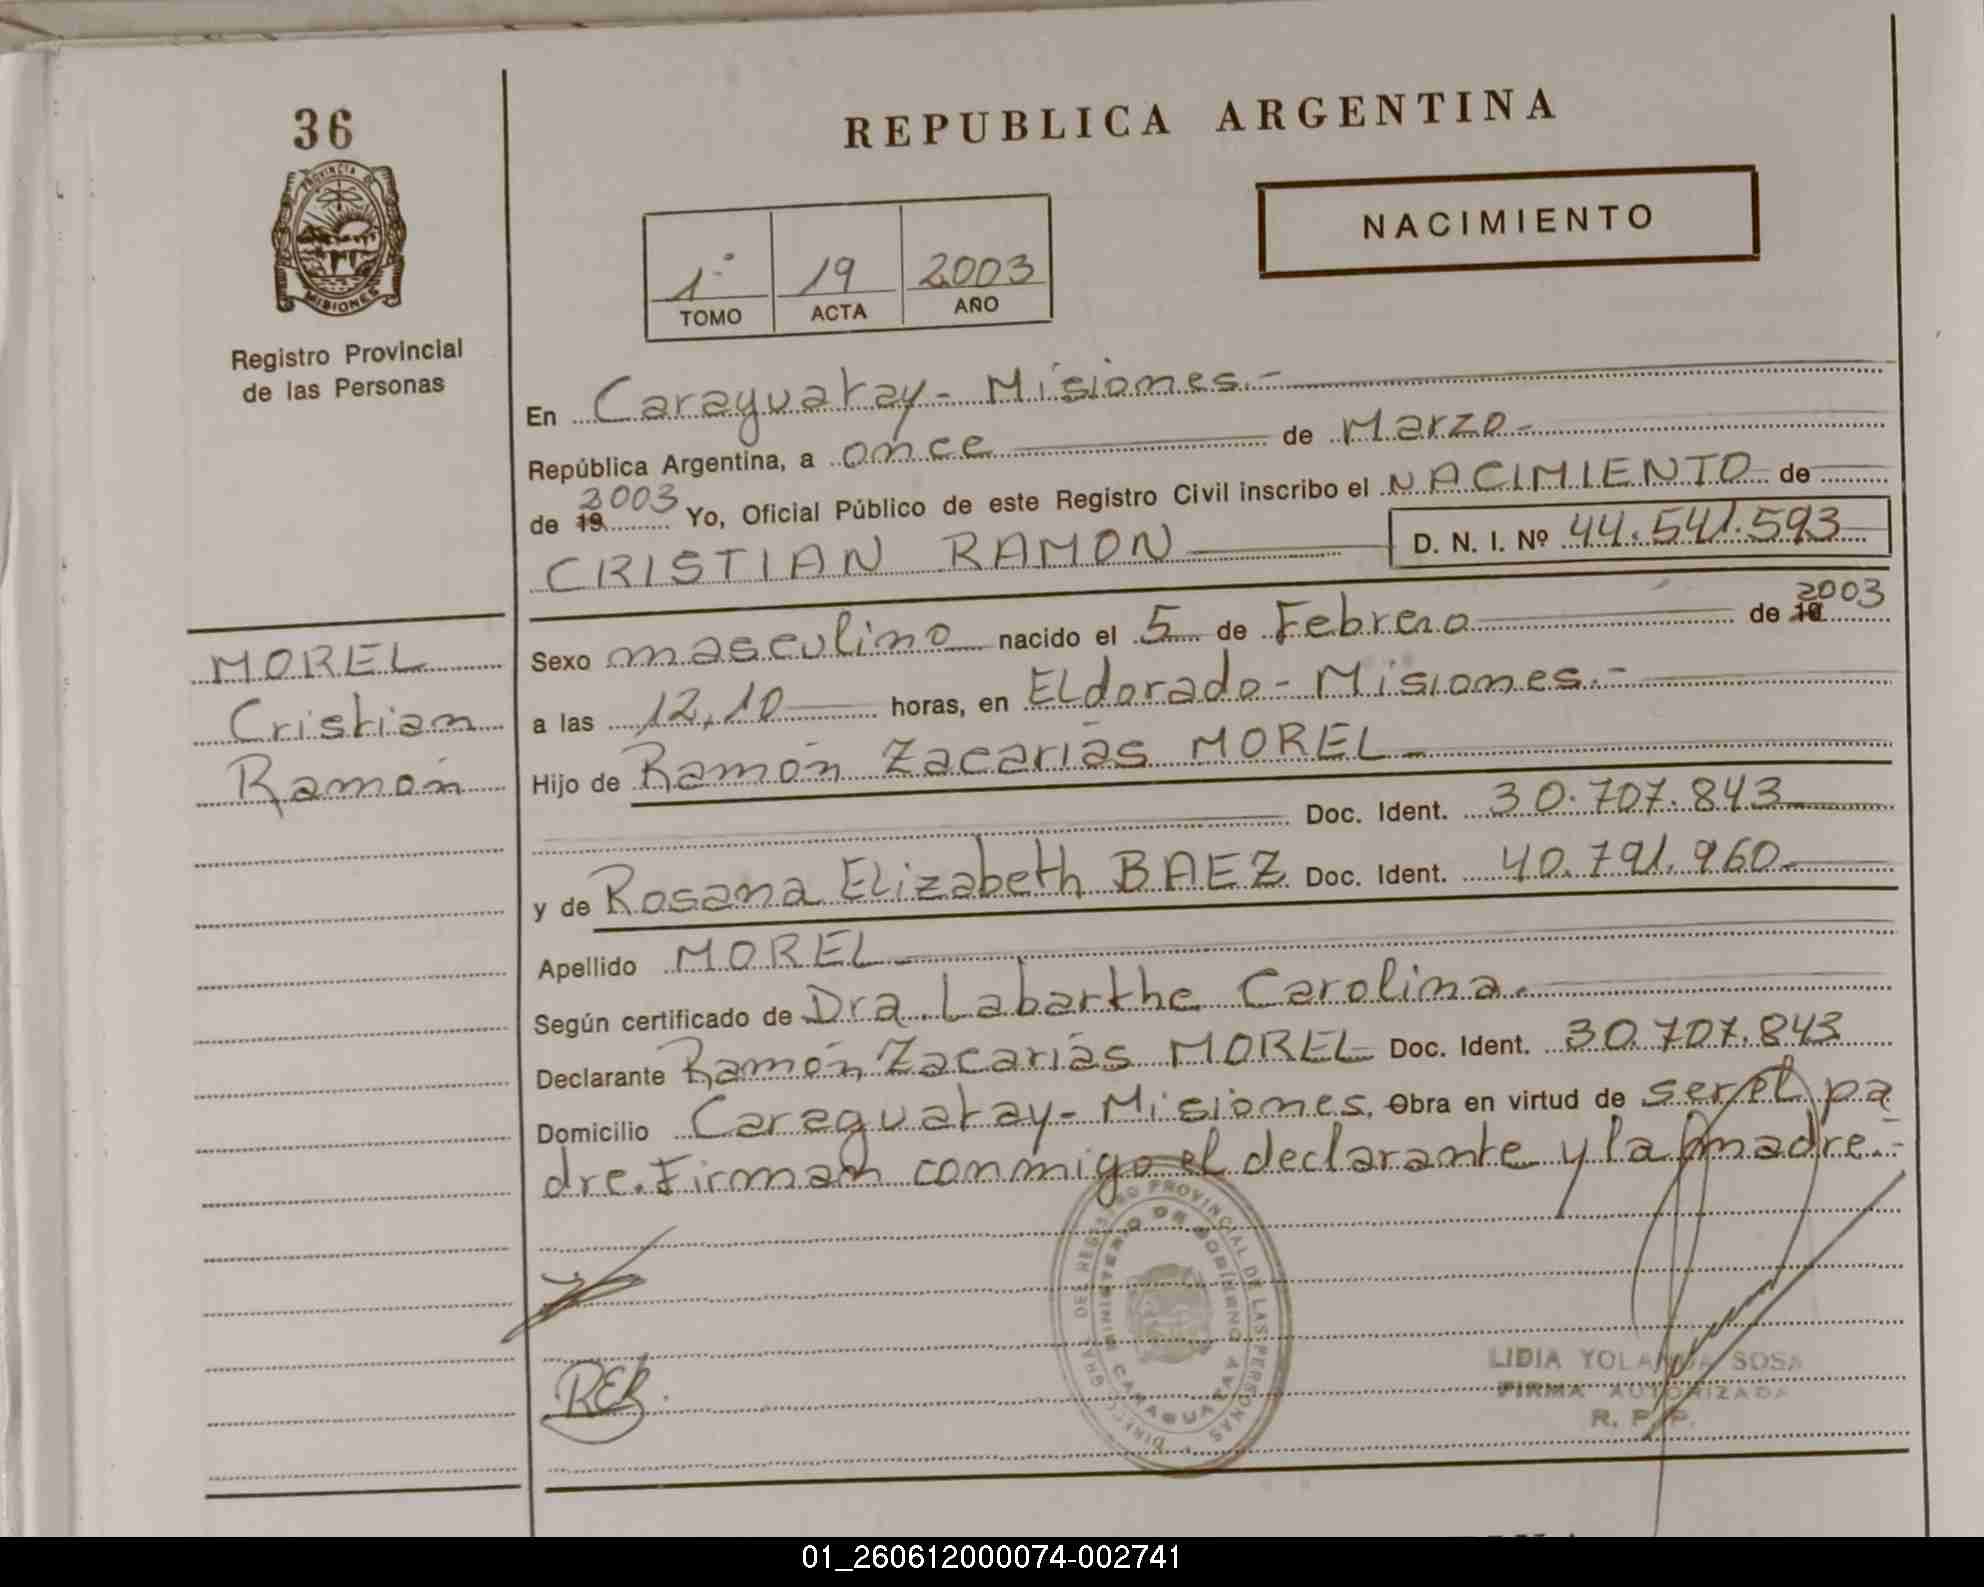 36
PROVINCIA DE
MISIONES
Registro Provincial
de las Personas
REPUBLICA ARGENTINA
NACIMIENTO
1º 19 2003
TOMO ACTA AÑO
En Caraguatay - Misiones.-
República Argentina, a once de Marzo -
de 19 2003 Yo, Oficial Público de este Registro Civil inscribo el NACIMIENTO de
CRISTIAN RAMON D. N. I. Nº 44.541.593
MOREL
Cristian
Ramón
Sexo masculino nacido el 5 de Febrero de 19 2003
a las 12,10 horas, en ELdorado - Misiones.-
Hijo de Ramón Zacarías MOREL -
Doc. Ident. 30.707.843
y de Rosana Elizabeth BAEZ Doc. Ident. 40.791.960-
Apellido MOREL -
Según certificado de Dra. Labarthe Carolina.
Declarante Ramón Zacarías MOREL Doc. Ident. 30.707.843
Domicilio Caraguatay - Misiones. Obra en virtud de ser el pa
dre. Firman conmigo el declarante y la madre.-
REB.
PROVINCIAL DE LAS PERSONAS
MINISTERIO DE GOBIERNO
LIDIA YOLANDA SOSA
FIRMA AUTORIZADA
R. P. P.
01_260612000074-002741